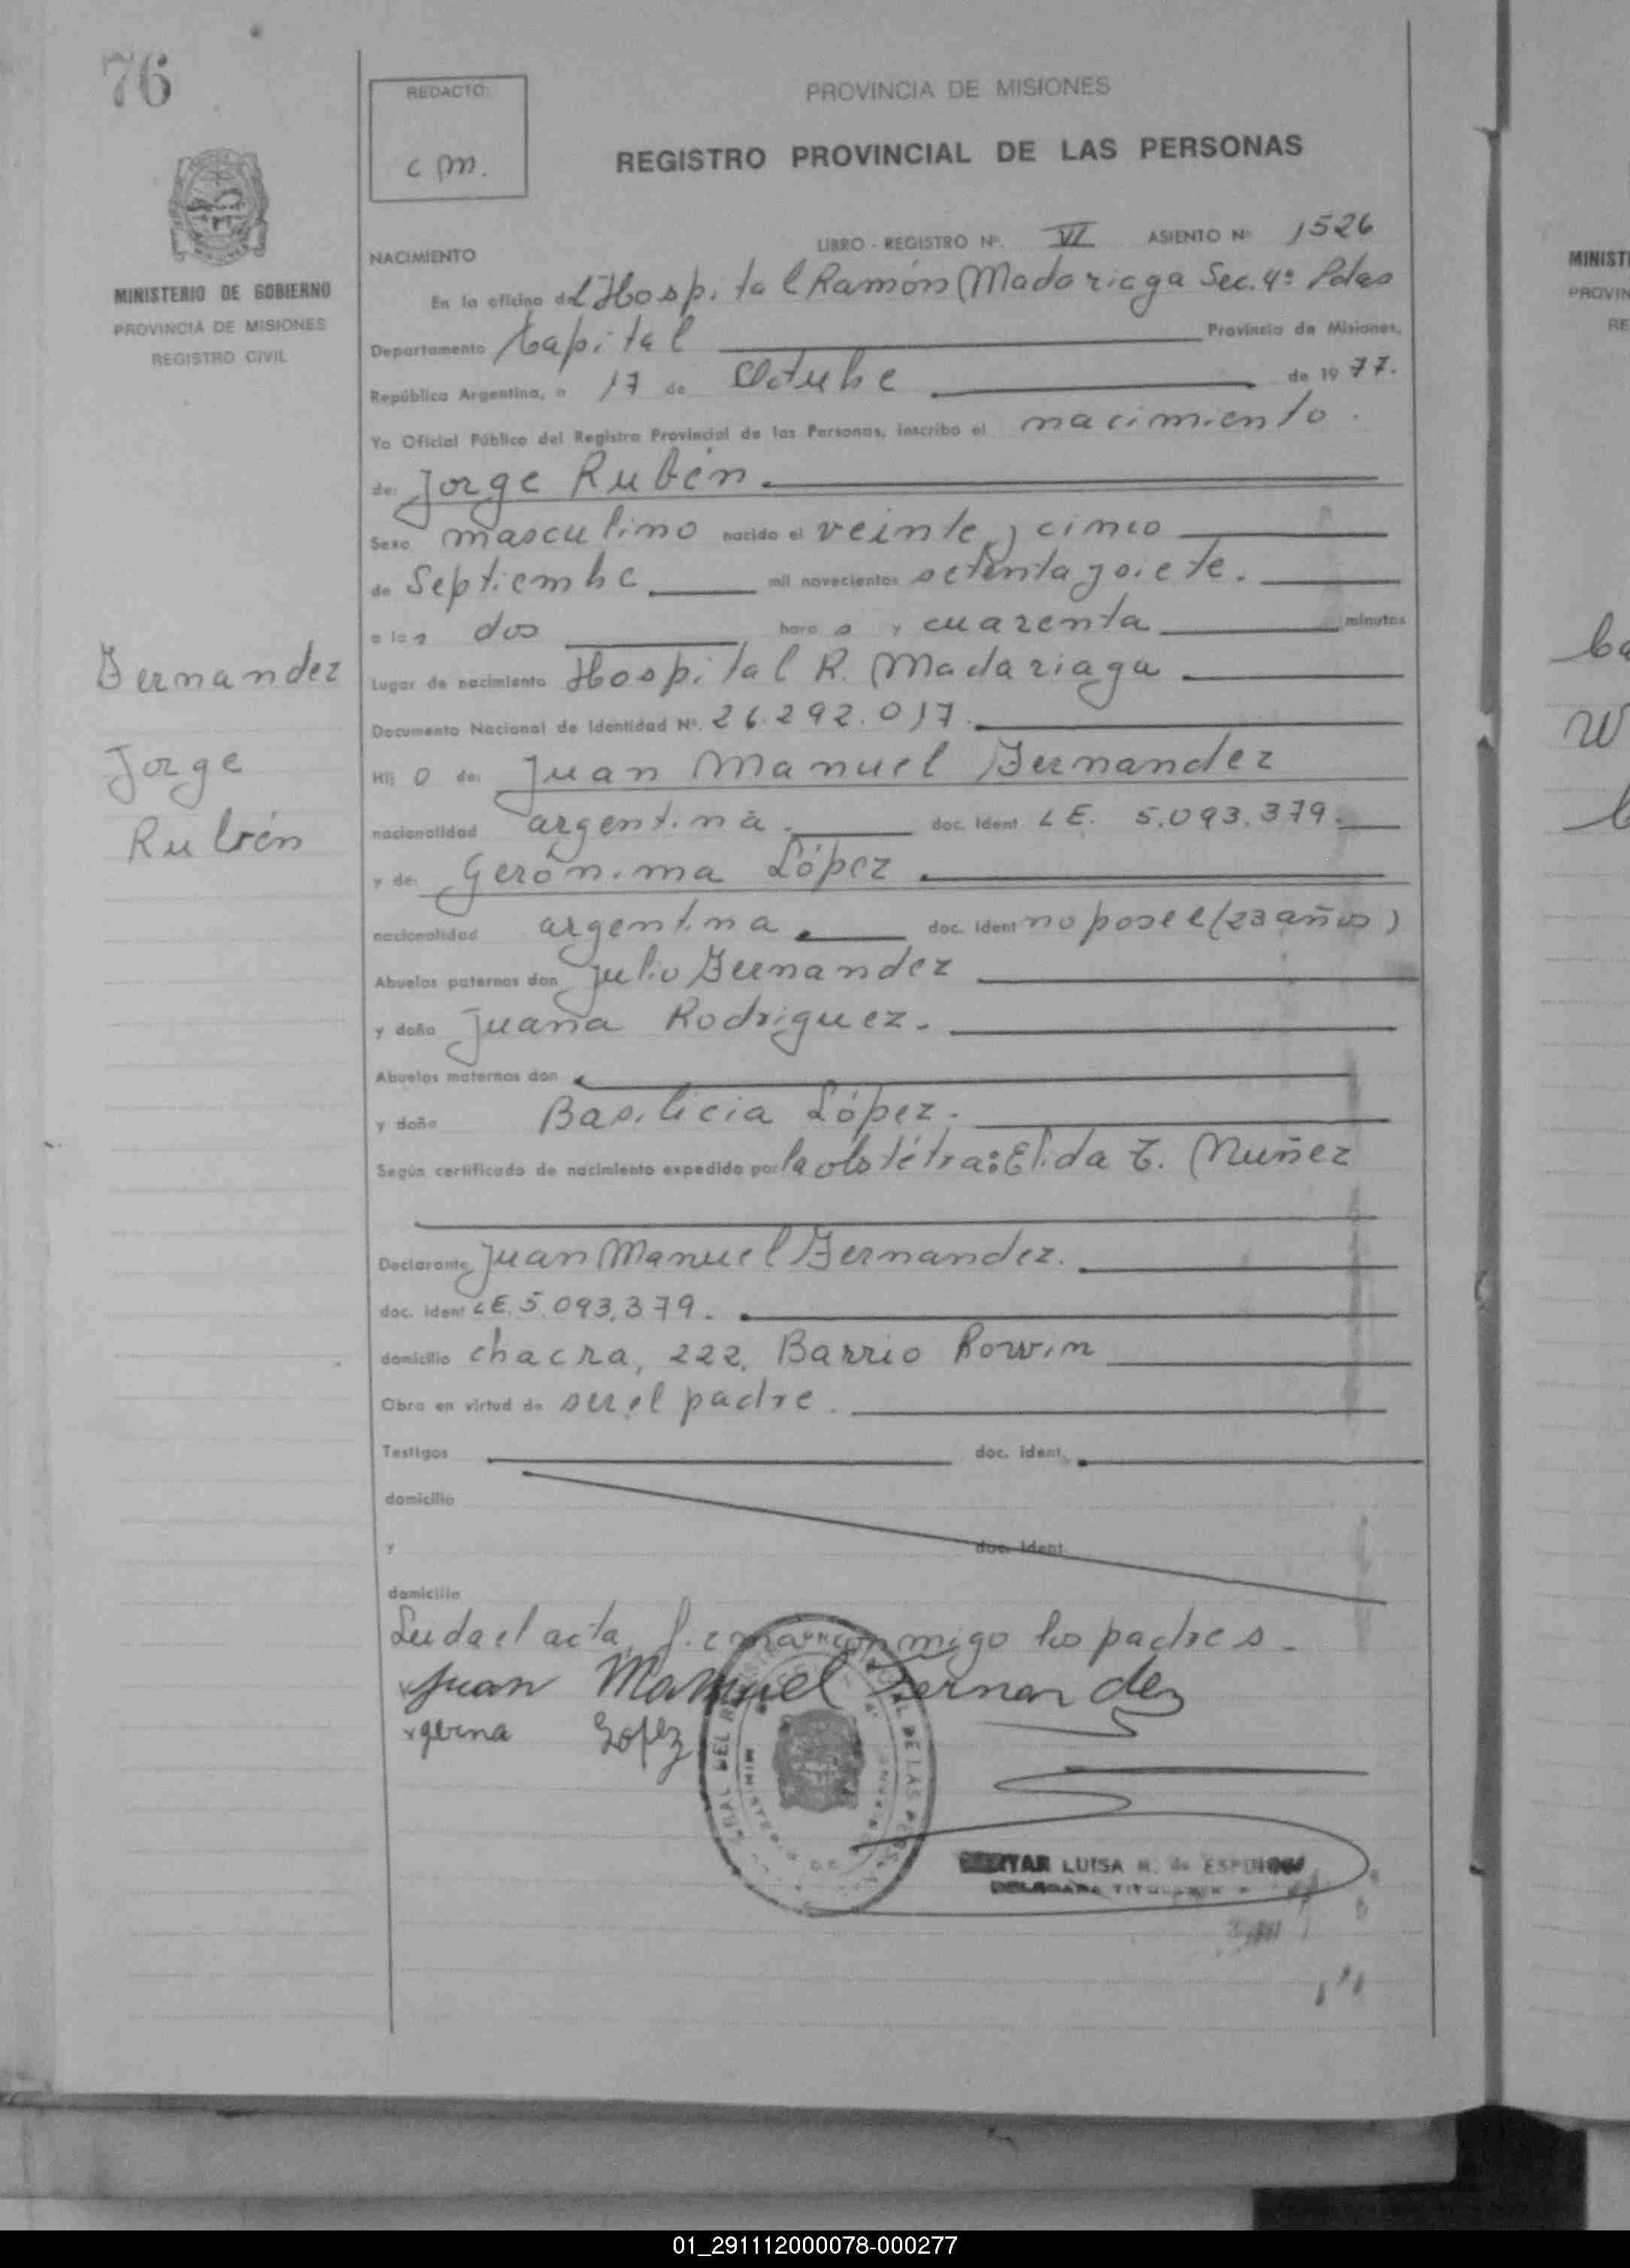 76
REDACTO:
c m.
PROVINCIA DE MISIONES
REGISTRO PROVINCIAL DE LAS PERSONAS
MINISTERIO DE GOBIERNO
PROVINCIA DE MISIONES
REGISTRO CIVIL
LIBRO - REGISTRO Nº. VI ASIENTO Nº 1526
NACIMIENTO
En la oficina del Hospital Ramón Madariaga Sec. 4º Pdas
Departamento Capital Provincia de Misiones,
República Argentina, a 17 de Octubre de 1977.
Yo Oficial Público del Registro Provincial de las Personas, inscribo el nacimiento.
de: Jorge Rubén.
Sexo masculino nacido el veinte y cinco
de Septiembre mil novecientos setenta y siete.
a las dos hora s y cuarenta minutos
Lugar de nacimiento Hospital R. Madariaga
Documento Nacional de Identidad Nº. 26.292.017.
Hij o de: Juan Manuel Fernandez
nacionalidad argentina. doc. ident LE. 5.093.379.
y de: Gerónima López
nacionalidad argentina doc. ident no posee (23 años)
Abuelos paternos don Julio Fernandez
y doña Juana Rodriguez.
Abuelos maternos don
y doña Basilicia López.
Según certificado de nacimiento expedido por la obstétra: Elida T. Nuñez
Declarante Juan Manuel Fernandez.
doc. ident LE. 5.093.379.
domicilio chacra, 222, Barrio Rowin
Obra en virtud de ser el padre.
Testigos doc. ident.
domicilio
y doc. ident
domicilio
Leida el acta, firman conmigo los padres.
Juan Manuel Fernandez
Lopez
LUISA R. de ESPINOSA
Fernandez
Jorge
Rubén
MINIST
PROVIN
RE
01_291112000078-000277